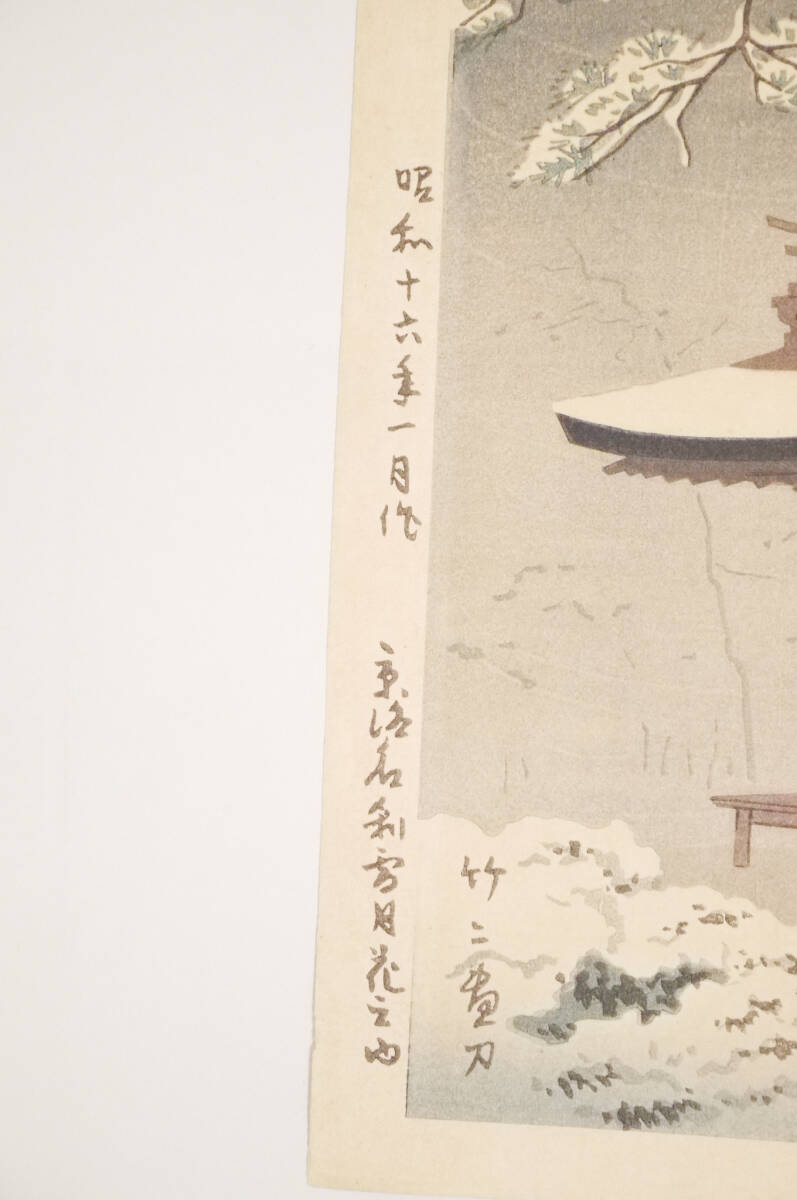 昭和十六年一月作
京洛名刹雪月花之内
竹二画刀